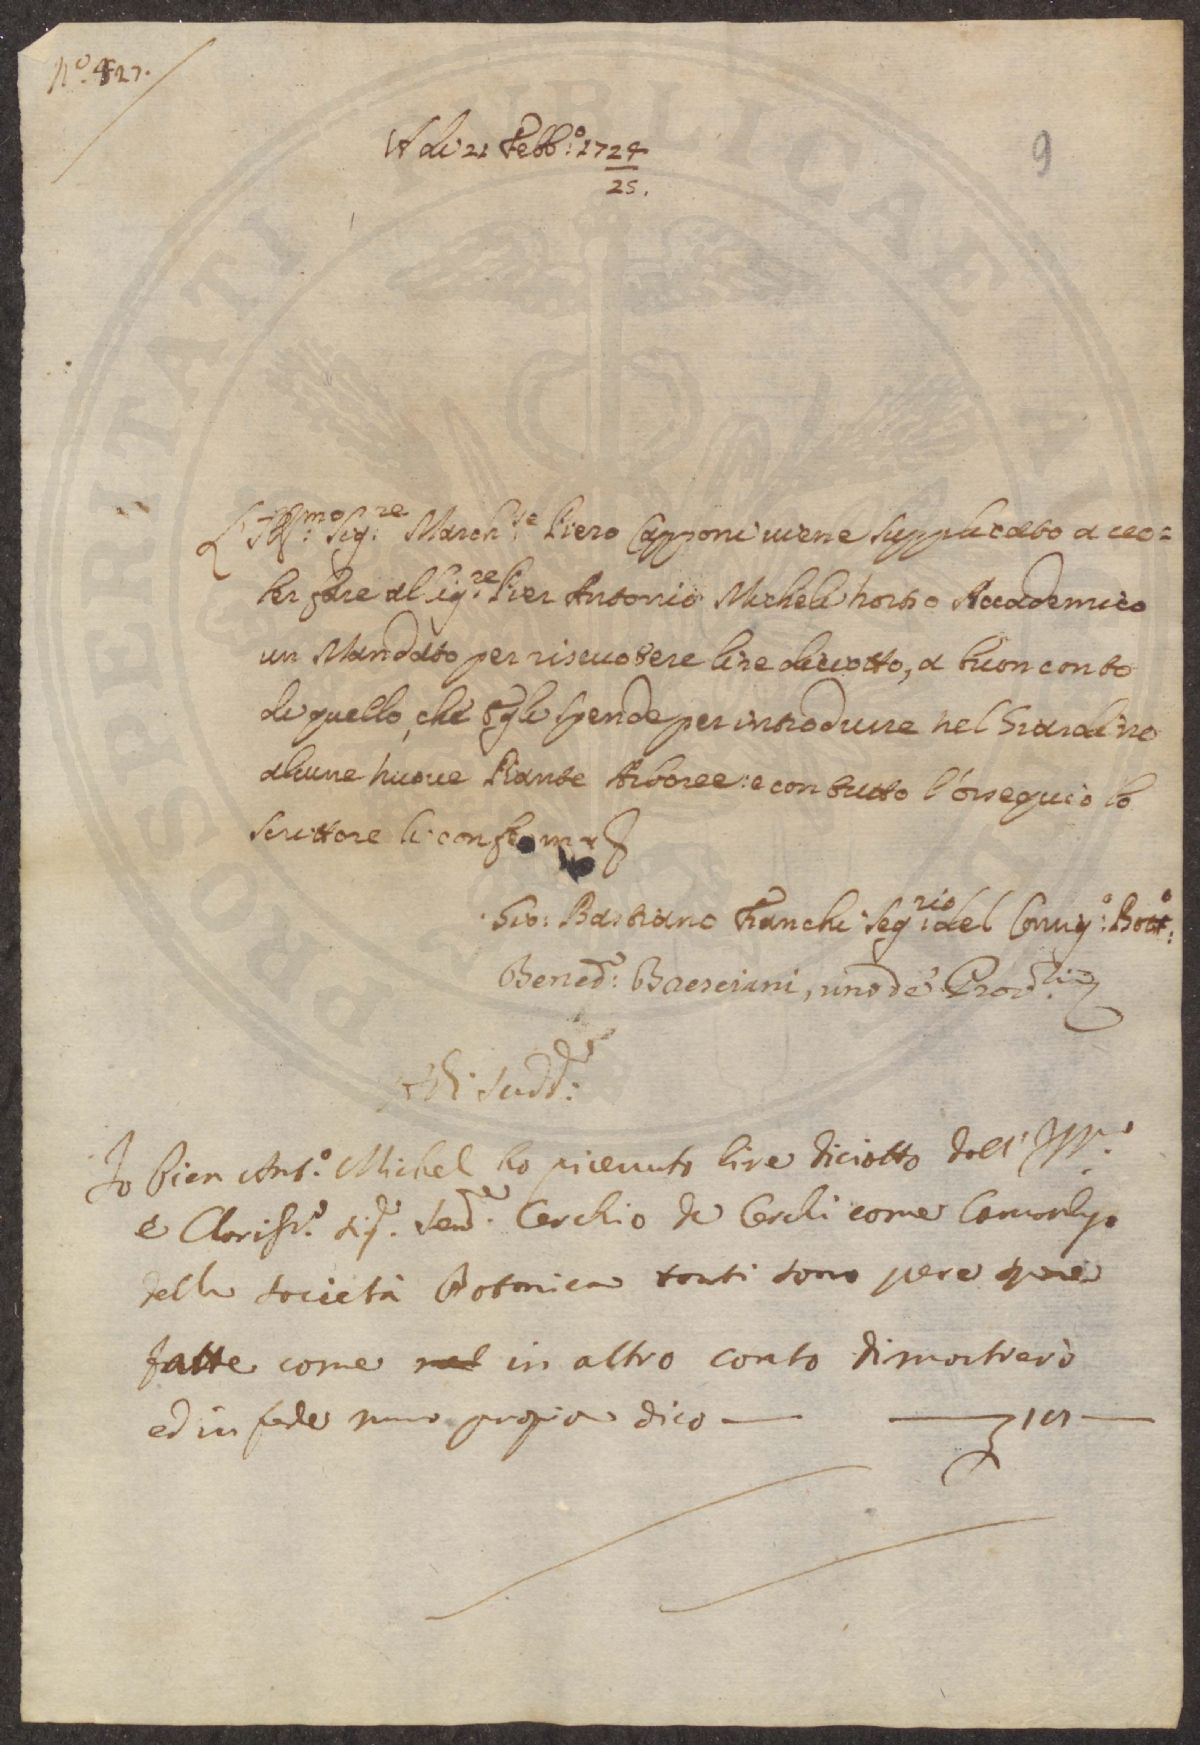 N.º 427.
9
A dì 21 Febb:º 1724
25.
L'Ill:mo Sig:re March:se Piero Capponi viene supplicato a ceo=
ler fare al Sig:re Pier Antonio Micheli nostro Accademico
un Mandato per riscuotere lire diciotto, a buon conto
di quello, che Egli spende per introdurre nel Giardino
alcune nuove Piante Arboree: e con tutto l'ossequio lo
scrittore li conferma
Gio: Bastiano Franchi Seg:rio del Conug:º Bott:º
Bened:º Bresciani, uno de' Prov:ri
A dì sudd:º
Io Pier Ant.º Micheli ho ricevuto lire diciotto dall' Ill.º
e Clariss.º Sig.e Send.e Cerchio de Cerchi come Camarlg.º
della società Botanica tanti sono per spese
fatte come in altro conto dimostrerò
ed in fede mano propria dico — 18 —
PROSPERITATI PUBLICAE